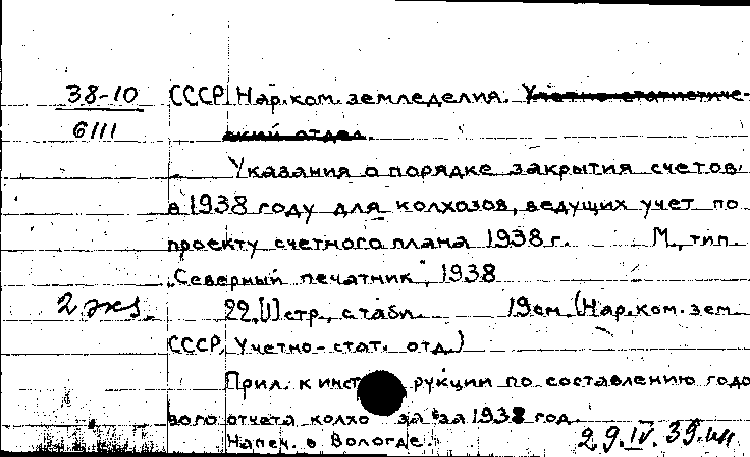 38-10 СССР. Нар.ком. земледелия. Учетно-статистиче-
6111 ский отдел.
Указания о порядке закрытия счетов
в 1938 году для колхозов, ведущих учет по
проекту счетного плана 1938 г. М., тип.
„Северный печатник", 1938
2 экз. 22,[1] стр., с табл. 19 см. (Нар.ком.зем
СССР, Учетно-стат. отд.)
Прил. к инструкции по составлению годо
вого отчета колхо за за 1938 год.
Напеч. в Вологде.
29.IV.39.